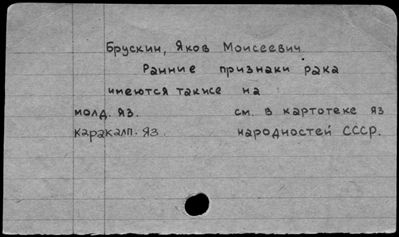 Брускин, Яков Моисеевич
Ранние признаки рака
имеются также на
молд. яз. см. в картотеке яз
каракалп. яз. народностей СССР.